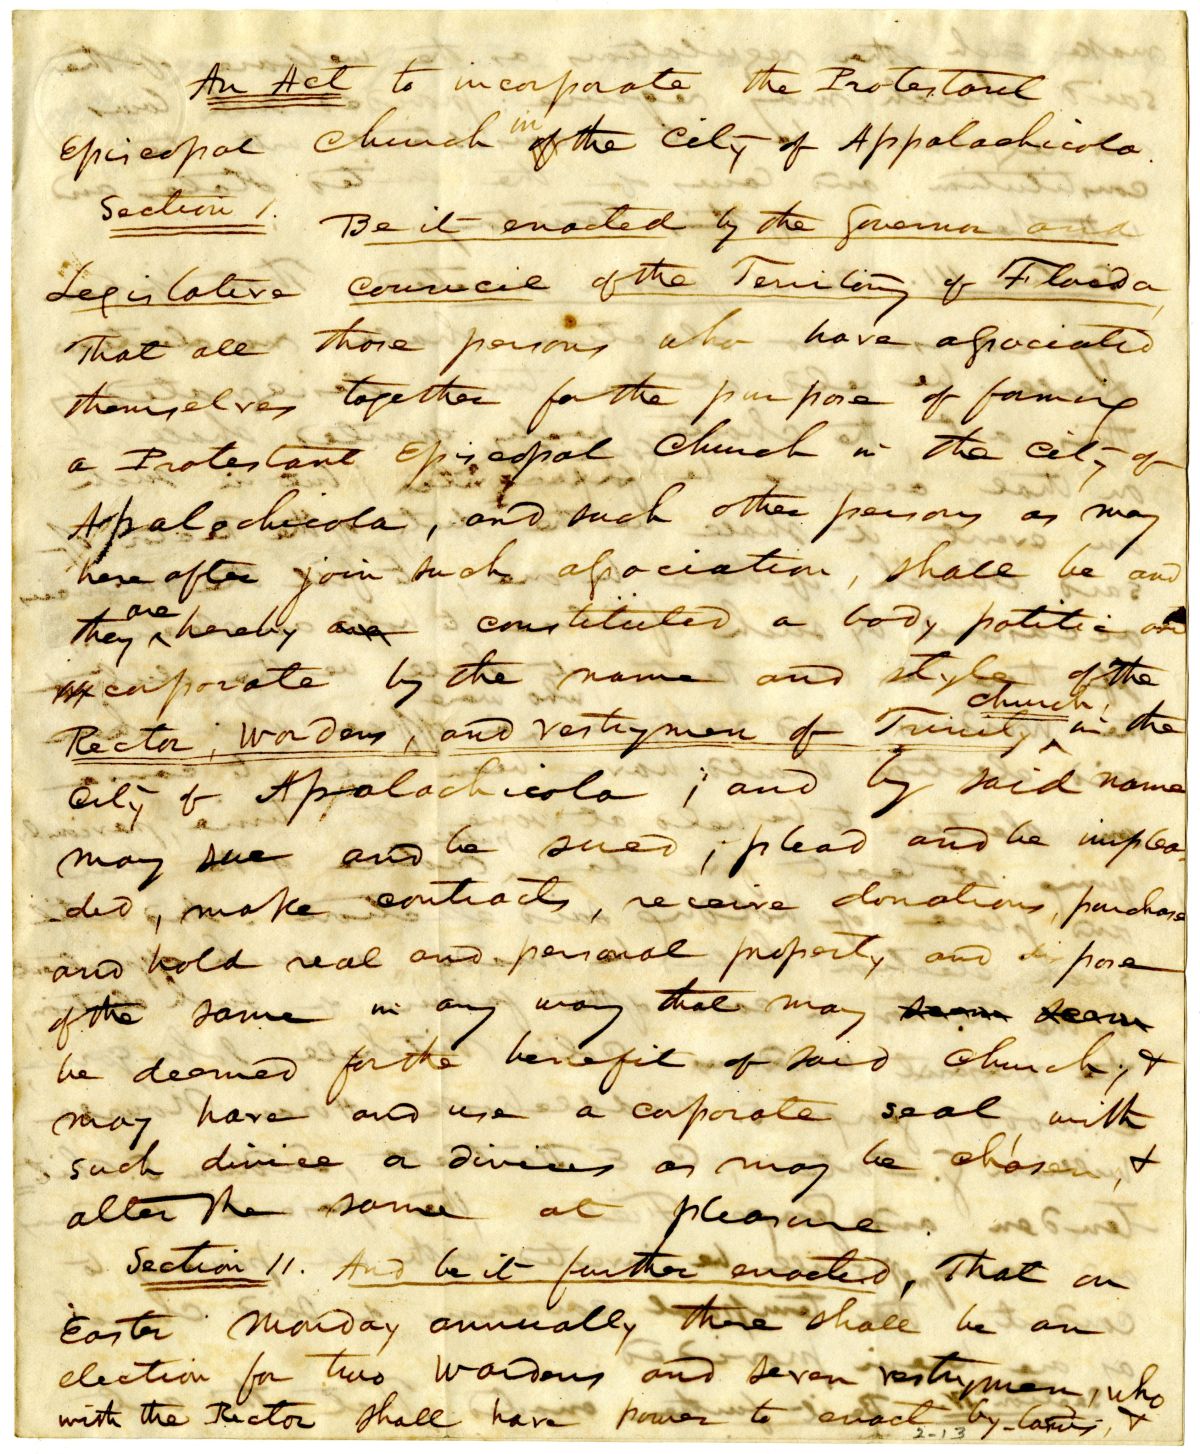 An Act to incorporate the Protestant
Episcopal Church in of the City of Appalachicola.
Section 1. Be it enacted by the Governor and
Legislative Council of the Territory of Florida,
That all those persons who have associated
themselves together for the purpose of forming
a Protestant Episcopal Church in the City of
Appalachicola, and such other persons as may
hereafter join such association, shall be and
they are hereby are constituted a body politic and
corporate by the name and style of the
Rector, Wardens, and Vestrymen of Trinity Church, in the
City of Appalachicola; and by said name
may sue and be sued; plead and be implea-
ded, make contracts, receive donations, purchase
and hold real and personal property and dispose
of the same in any way that may seem seem
be deemed for the benefit of said Church, &
may have and use a corporate seal, with
such divice or divices as may be chosen, &
alter the same at pleasure.
Section 11. And be it further enacted, That on
Easter Monday annually there shall be an
election for two Wardens and seven vestrymen, who
with the Rector shall have power to enact by-laws, &
2-13